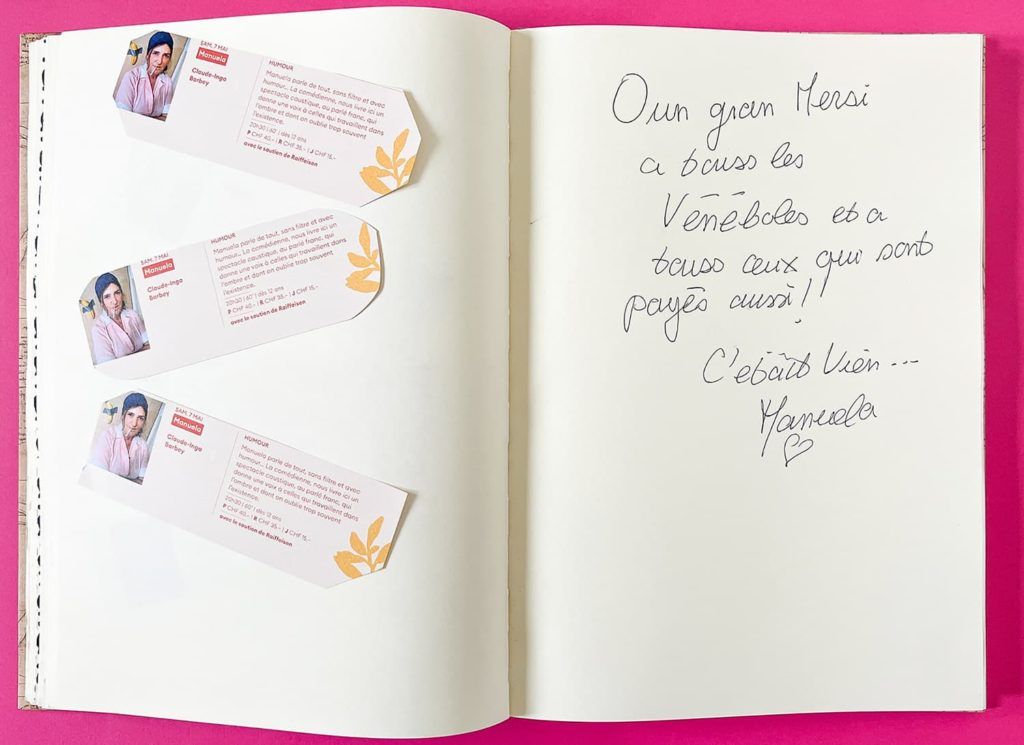 SAM. 7 MAI
Manuela
Claude-Inga
Barbey
HUMOUR
Manuela parle de tout, sans filtre et avec
humour... La comédienne, nous livre ici un
spectacle caustique, au parlé franc, qui
donne une voix à celles qui travaillent dans
l'ombre et dont on oublie trop souvent
l'existence.
20h30 | 60' | dès 12 ans
P CHF 40.- | R CHF 35.- | J CHF 15.-
avec le soutien de Raiffeisen
SAM. 7 MAI
Manuela
Claude-Inga
Barbey
HUMOUR
Manuela parle de tout, sans filtre et avec
humour... La comédienne, nous livre ici un
spectacle caustique, au parlé franc, qui
donne une voix à celles qui travaillent dans
l'ombre et dont on oublie trop souvent
l'existence.
20h30 | 60' | dès 12 ans
P CHF 40.- | R CHF 35.- | J CHF 15.-
avec le soutien de Raiffeisen
SAM. 7 MAI
Manuela
Claude-Inga
Barbey
HUMOUR
Manuela parle de tout, sans filtre et avec
humour... La comédienne, nous livre ici un
spectacle caustique, au parlé franc, qui
donne une voix à celles qui travaillent dans
l'ombre et dont on oublie trop souvent
l'existence.
20h30 | 60' | dès 12 ans
P CHF 40.- | R CHF 35.- | J CHF 15.-
avec le soutien de Raiffeisen
Oun gran Mersi
a touss les
Vénéboles et a
touss ceux qui sont
payés aussi!
C'etäit Vièn...
Manuela
♡